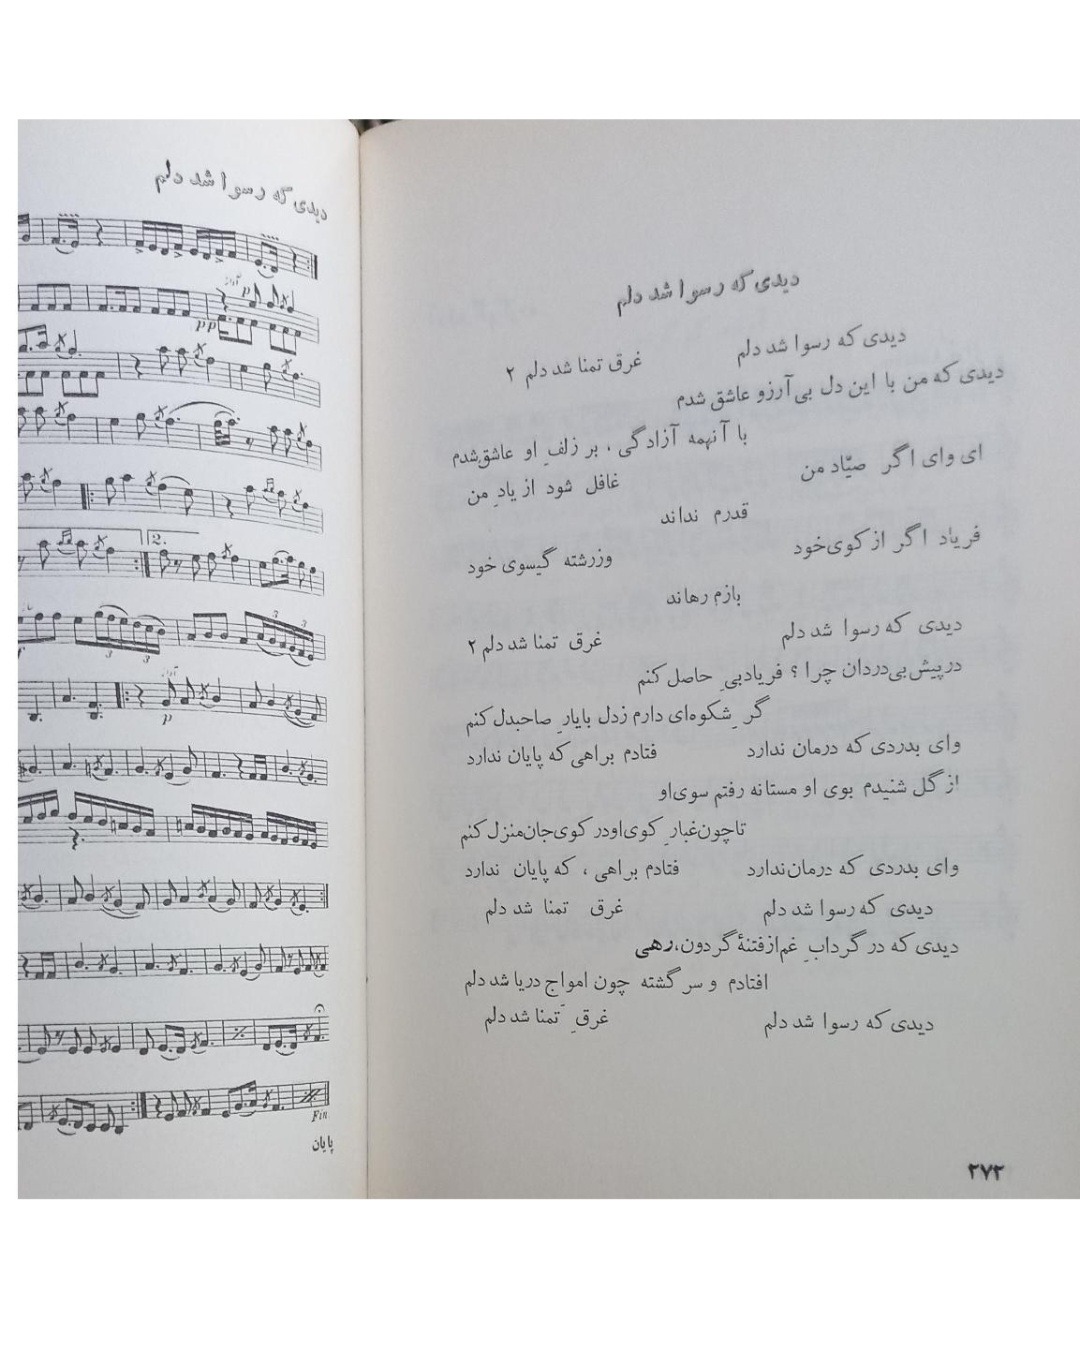 دیدی که رسوا شد دلم
آواز
p
pp
2.
3
3
3
3
آواز
p
Fin
پایان
دیدی که رسوا شد دلم
دیدی که رسوا شد دلم غرق تمنا شد دلم ۲
دیدی که من با این دل بی‌آرزو عاشق شدم
با آنهمه آزادگی، بر زلفِ او عاشق شدم
ای وای اگر صیّاد من غافل شود از یادِ من
قدرم نداند
فریاد اگر از کوی خود وزرشته گیسوی خود
بازم رهاند
دیدی که رسوا شد دلم غرق تمنا شد دلم ۲
درپیش بی‌دردان چرا؟ فریادبیِ حاصل کنم
گرِ شکوه‌ای دارم زدل بایارِ صاحبدل کنم
وای بدردی که درمان ندارد فتادم براهی که پایان ندارد
از گل شنیدم بوی او مستانه رفتم سوی او
تا چون غبارِ کوی او در کوی جان منزل کنم
وای بدردی که درمان ندارد فتادم براهی، که پایان ندارد
دیدی که رسوا شد دلم غرق تمنا شد دلم
دیدی که در گردابِ غم از فتنهٔ گردون، رهی
افتادم و سرگشته چون امواج دریا شد دلم
دیدی که رسوا شد دلم غرقِ تمنا شد دلم
۲۷۳